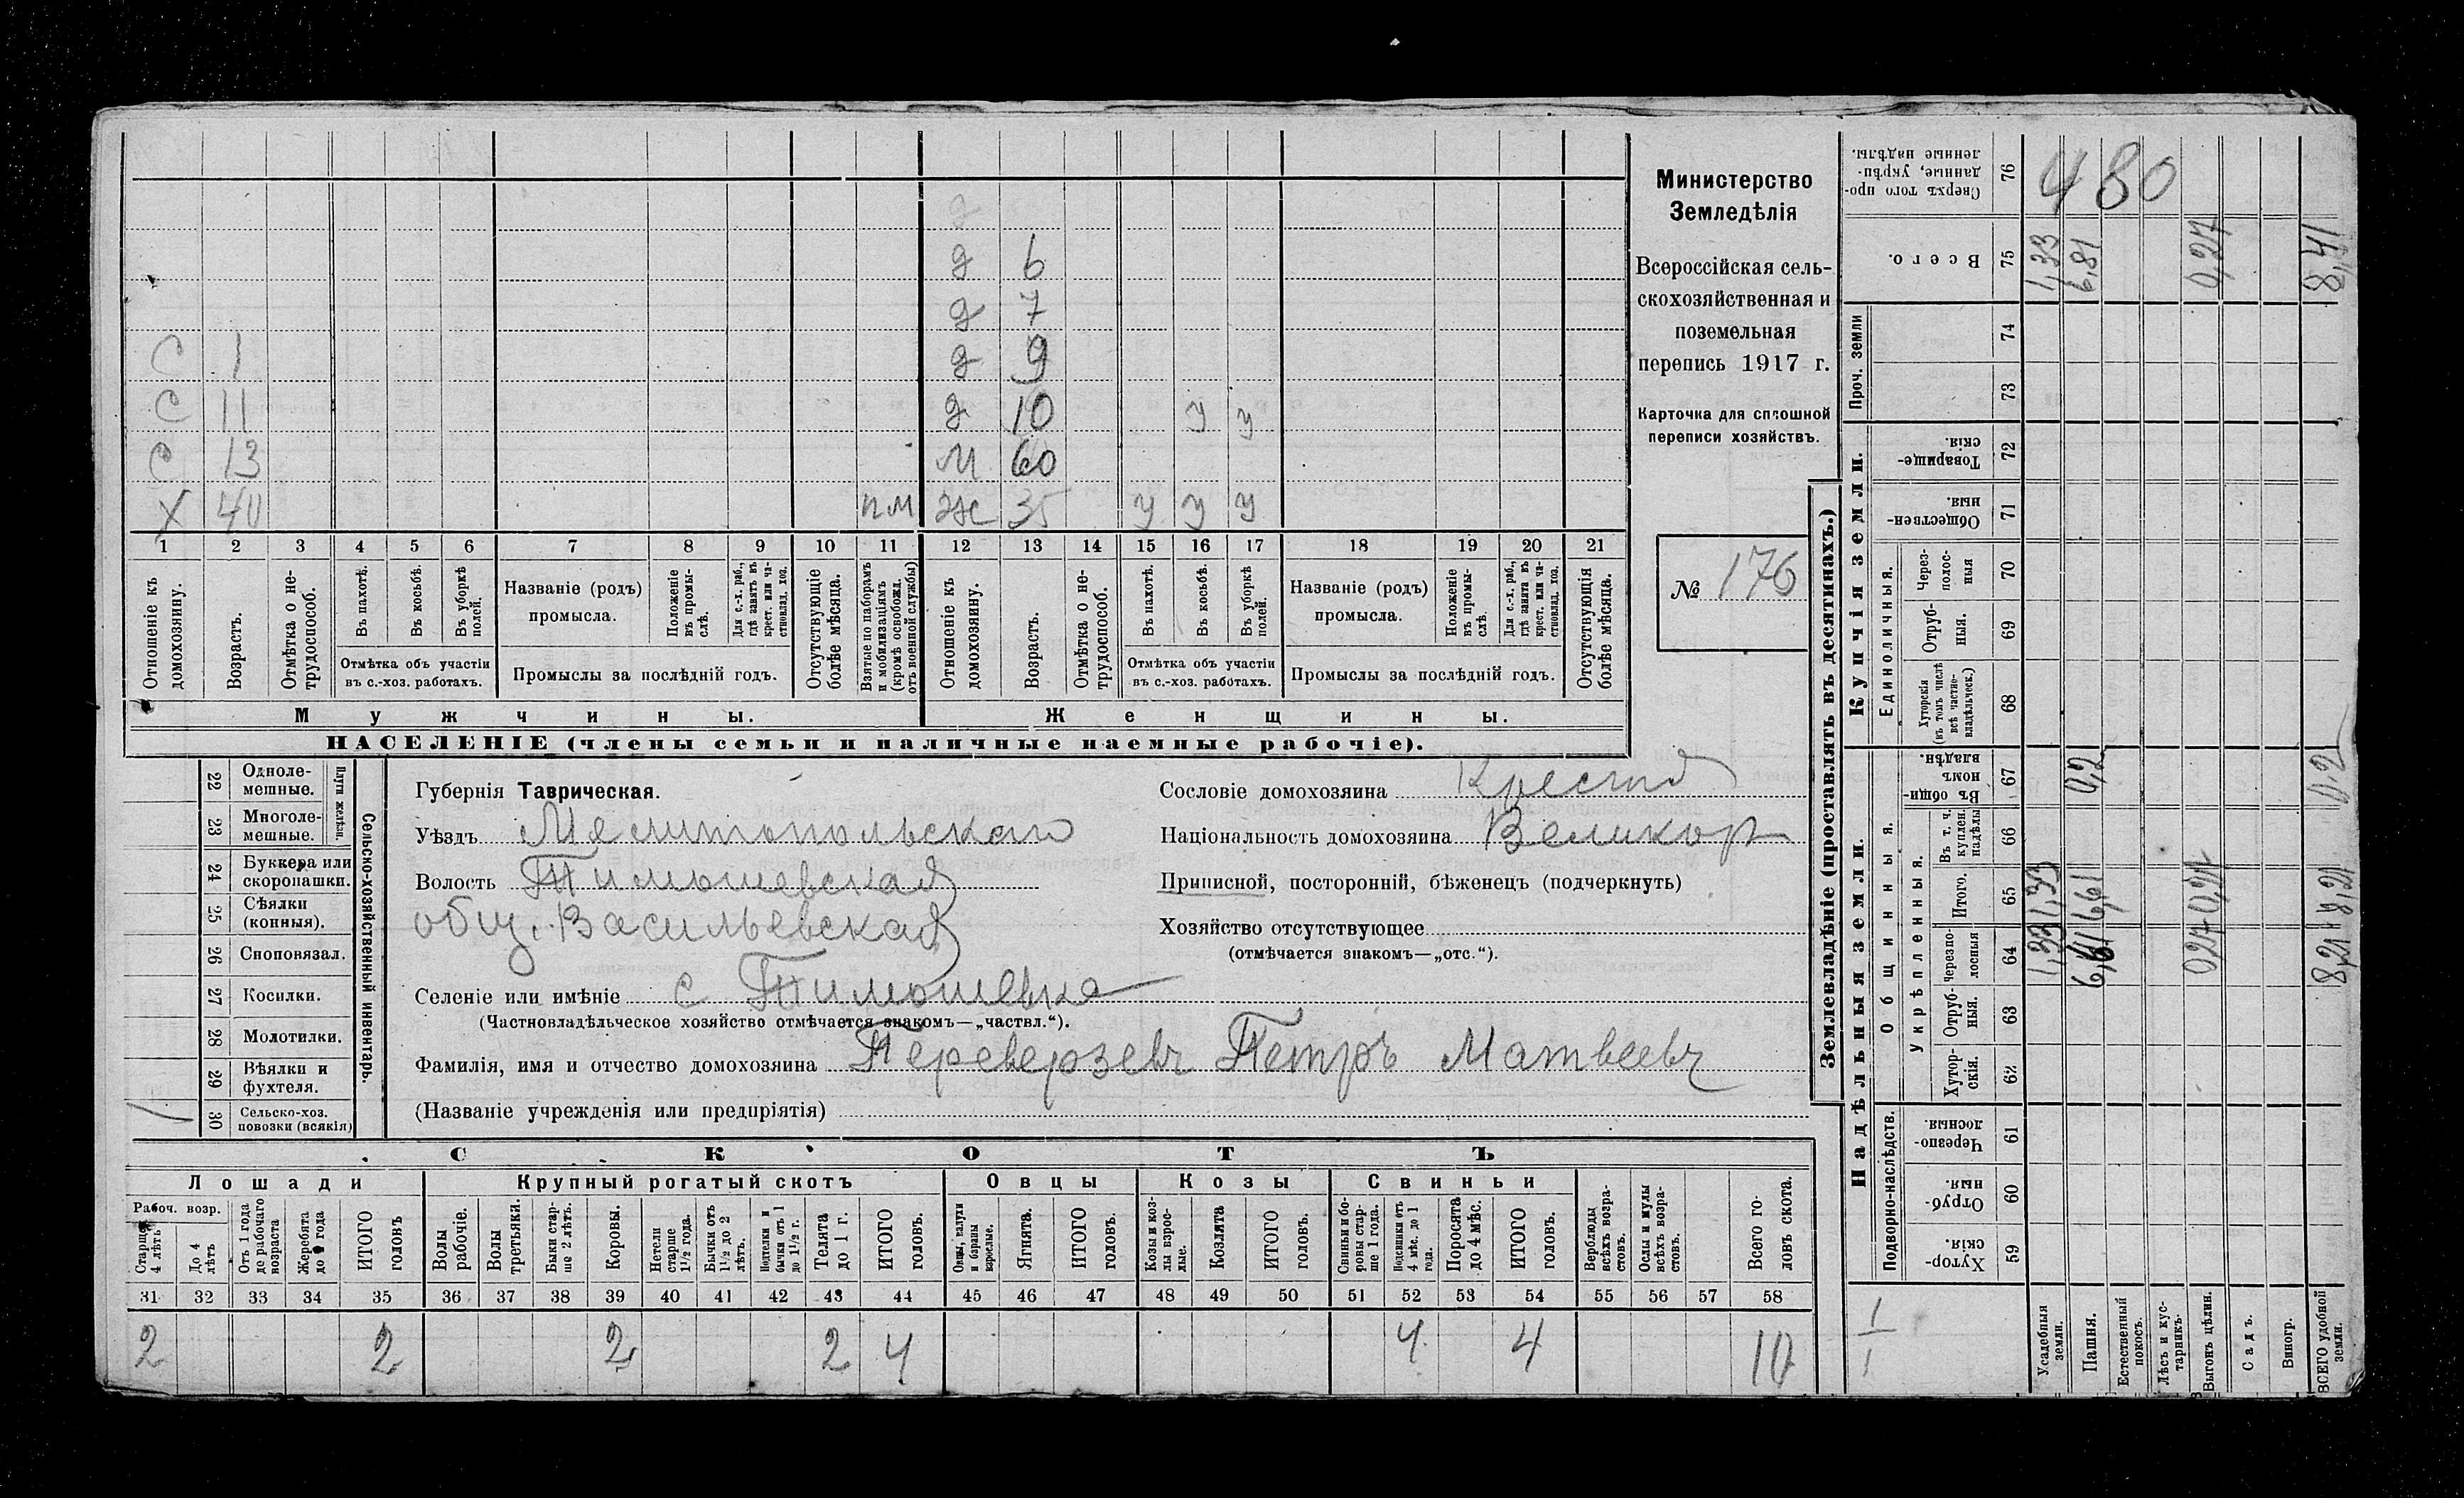 д
д 6
д 7
С 1 д 9
С 11 д 10 у у
С 13 М 60
Х 40 п м Ж 35 у у у
1 2 3 4 5 6 7 8 9 10 11 12 13 14 15 16 17 18 19 20 21
Отношеніе къ домохозяину.
Возрастъ.
Отмѣтка о не-трудоспособ.
Въ пахотѣ.
Въ косьбѣ.
Въ уборкѣ полей.
Отмѣтка объ участіи
въ с.-хоз. работахъ.
Названіе (родъ)
промысла.
Положеніе въ промы-слѣ.
Для с.-х. раб., гдѣ занятъ въ крест. или ча-стновлад. хоз.
Промыслы за послѣдній годъ.
Отсутствующіе болѣе мѣсяца.
Взятые по наборамъ и мобилизаціямъ (кромѣ освобожд. отъ военной службы)
Отношеніе къ домохозяину.
Возрастъ.
Отмѣтка о не-трудоспособ.
Въ пахотѣ.
Въ косьбѣ.
Въ уборкѣ полей.
Отмѣтка объ участіи
въ с.-хоз. работахъ.
Названіе (родъ)
промысла.
Положеніе въ промы-слѣ.
Для с.-х. раб., гдѣ занята въ крест. или ча-стновлад. хоз.
Промыслы за послѣдній годъ.
Отсутствующія болѣе мѣсяца.
Мужчины. Женщины.
НАСЕЛЕНІЕ (члены семьи и наличные наемные рабочіе).
Министерство
Земледѣлія
Всероссійская сель-
скохозяйственная и
поземельная
перепись 1917 г.
Карточка для сплошной
переписи хозяйствъ.
№ 176
22 Одноле-мешные.
23 Многоле-мешные.
Плуги желѣзн.
24 Буккера или скоропашки.
25 Сѣялки (конныя).
26 Сноповязал.
27 Косилки.
28 Молотилки.
29 Вѣялки и фухтеля.
30 Сельско-хоз. повозки (всякія) 1
Сельско-хозяйственный инвентарь.
Губернія Таврическая.
Уѣздъ Мелитопольскаго
Волость Тимошевская
общ. Васильевская
Селеніе или имѣніе с Тимошевка
(Частновладѣльческое хозяйство отмѣчается знакомъ—„частвл.“).
Фамилія, имя и отчество домохозяина Переверзевъ Петръ Матвеевъ
(Названіе учрежденія или предпріятія)
Сословіе домохозяина Крестья
Національность домохозяина Великор
Приписной, посторонній, бѣженецъ (подчеркнуть)
Хозяйство отсутствующее
(отмѣчается знакомъ—„отс.“).
СКОТЪ
Лошади Крупный рогатый скотъ Овцы Козы Свиньи
Рабоч. возр.
Старше 4 лѣтъ
До 4 лѣтъ
Отъ 1 года до рабочаго возраста
Жеребята до 1 года
ИТОГО головъ
Волы рабочіе.
Волы третьяки.
Быки стар-ше 2 лѣтъ.
Коровы.
Нетели старше 1½ года.
Бычки отъ 1½ до 2 лѣтъ.
Подтелки и бычки отъ 1 до 1½ г.
Телята до 1 г.
ИТОГО головъ.
Овцы, валухи и бараны взрослые.
Ягнята.
ИТОГО головъ.
Козы и коз-лы взрос-лые.
Козлята
ИТОГО головъ.
Свиньи и бо-ровы стар-ше 1 года.
Подсвинки отъ 4 мѣс. до 1 года.
Поросята до 4 мѣс.
ИТОГО головъ.
Верблюды всѣхъ возра-стовъ.
Ослы и мулы всѣхъ возра-стовъ.
Всего го-ловъ скота.
31 32 33 34 35 36 37 38 39 40 41 42 43 44 45 46 47 48 49 50 51 52 53 54 55 56 57 58
2 2 2 2 4 4 4 10
Землевладѣніе (проставлять въ десятинахъ.)
Купчія земли.
Надѣльныя земли.
Сверхъ того про-данные, укрѣп-ленные надѣлы. 76 480
Всего. 75 1,33 6,81 0,27 8,41
Проч. земли 74
73
Товарище-скія. 72
Обществен-ныя. 71
Единоличныя.
Через-полос-ныя 70
Отруб-ныя. 69
Хуторскія (въ томъ числѣ всѣ частно-владѣльческ.) 68
Общинныя.
Въ общи-номъ владѣн. 67 0,2 0,2
Укрѣпленныя.
Въ т. ч. куплен. надѣлы 66
Итого. 65 1,33 6,61 0,27 8,21
Черезпо-лосныя 64 1,33 6,61 0,27 8,21
Отруб-ныя. 63
Хутор-скія. 62
Подворно-наслѣдств.
Черезпо-лосныя. 61
Отруб-ныя. 60
Хутор-скія 59
1
1
Усадебныя земли.
Пашня.
Естественный покосъ.
Лѣсъ и кус-тарникъ.
Выгонъ цѣлин.
Садъ.
Виногр.
ВСЕГО удобной земли.